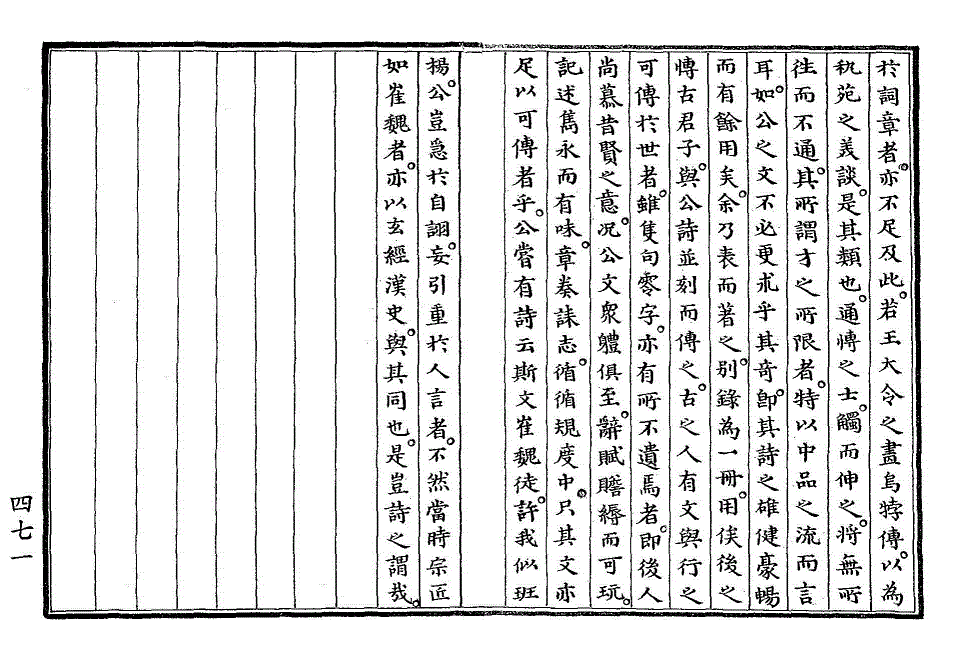 於詞章者。亦不足及此。若王大令之畫烏牸傳。以為
秇苑之美談。是其類也。通博之士。觸而伸之。將無所
徃而不通。其所謂才之所限者。特以中品之流而言
耳。如公之文不必更求乎其奇。即其詩之雄健豪暢
而有餘用矣。余乃表而著之。別錄為一冊。用俟後之
博古君子。與公詩並刻而傳之。古之人有文與行之
可傳於世者。雖隻句零字。亦有所不遺焉者。即後人
尚慕昔賢之意。况公文眾軆俱至。辭賦贍縟而可玩。
記述雋永而有味。章奏誄志。循循規度中。只其文亦
足以可傳者乎。公嘗有詩云斯文崔魏徒。許我似班
楊。公豈急於自詡。妄引重於人言者。不然當時宗匠
如崔魏者。亦以玄經漢史。與其同也。是豈詩之謂哉。
四七一